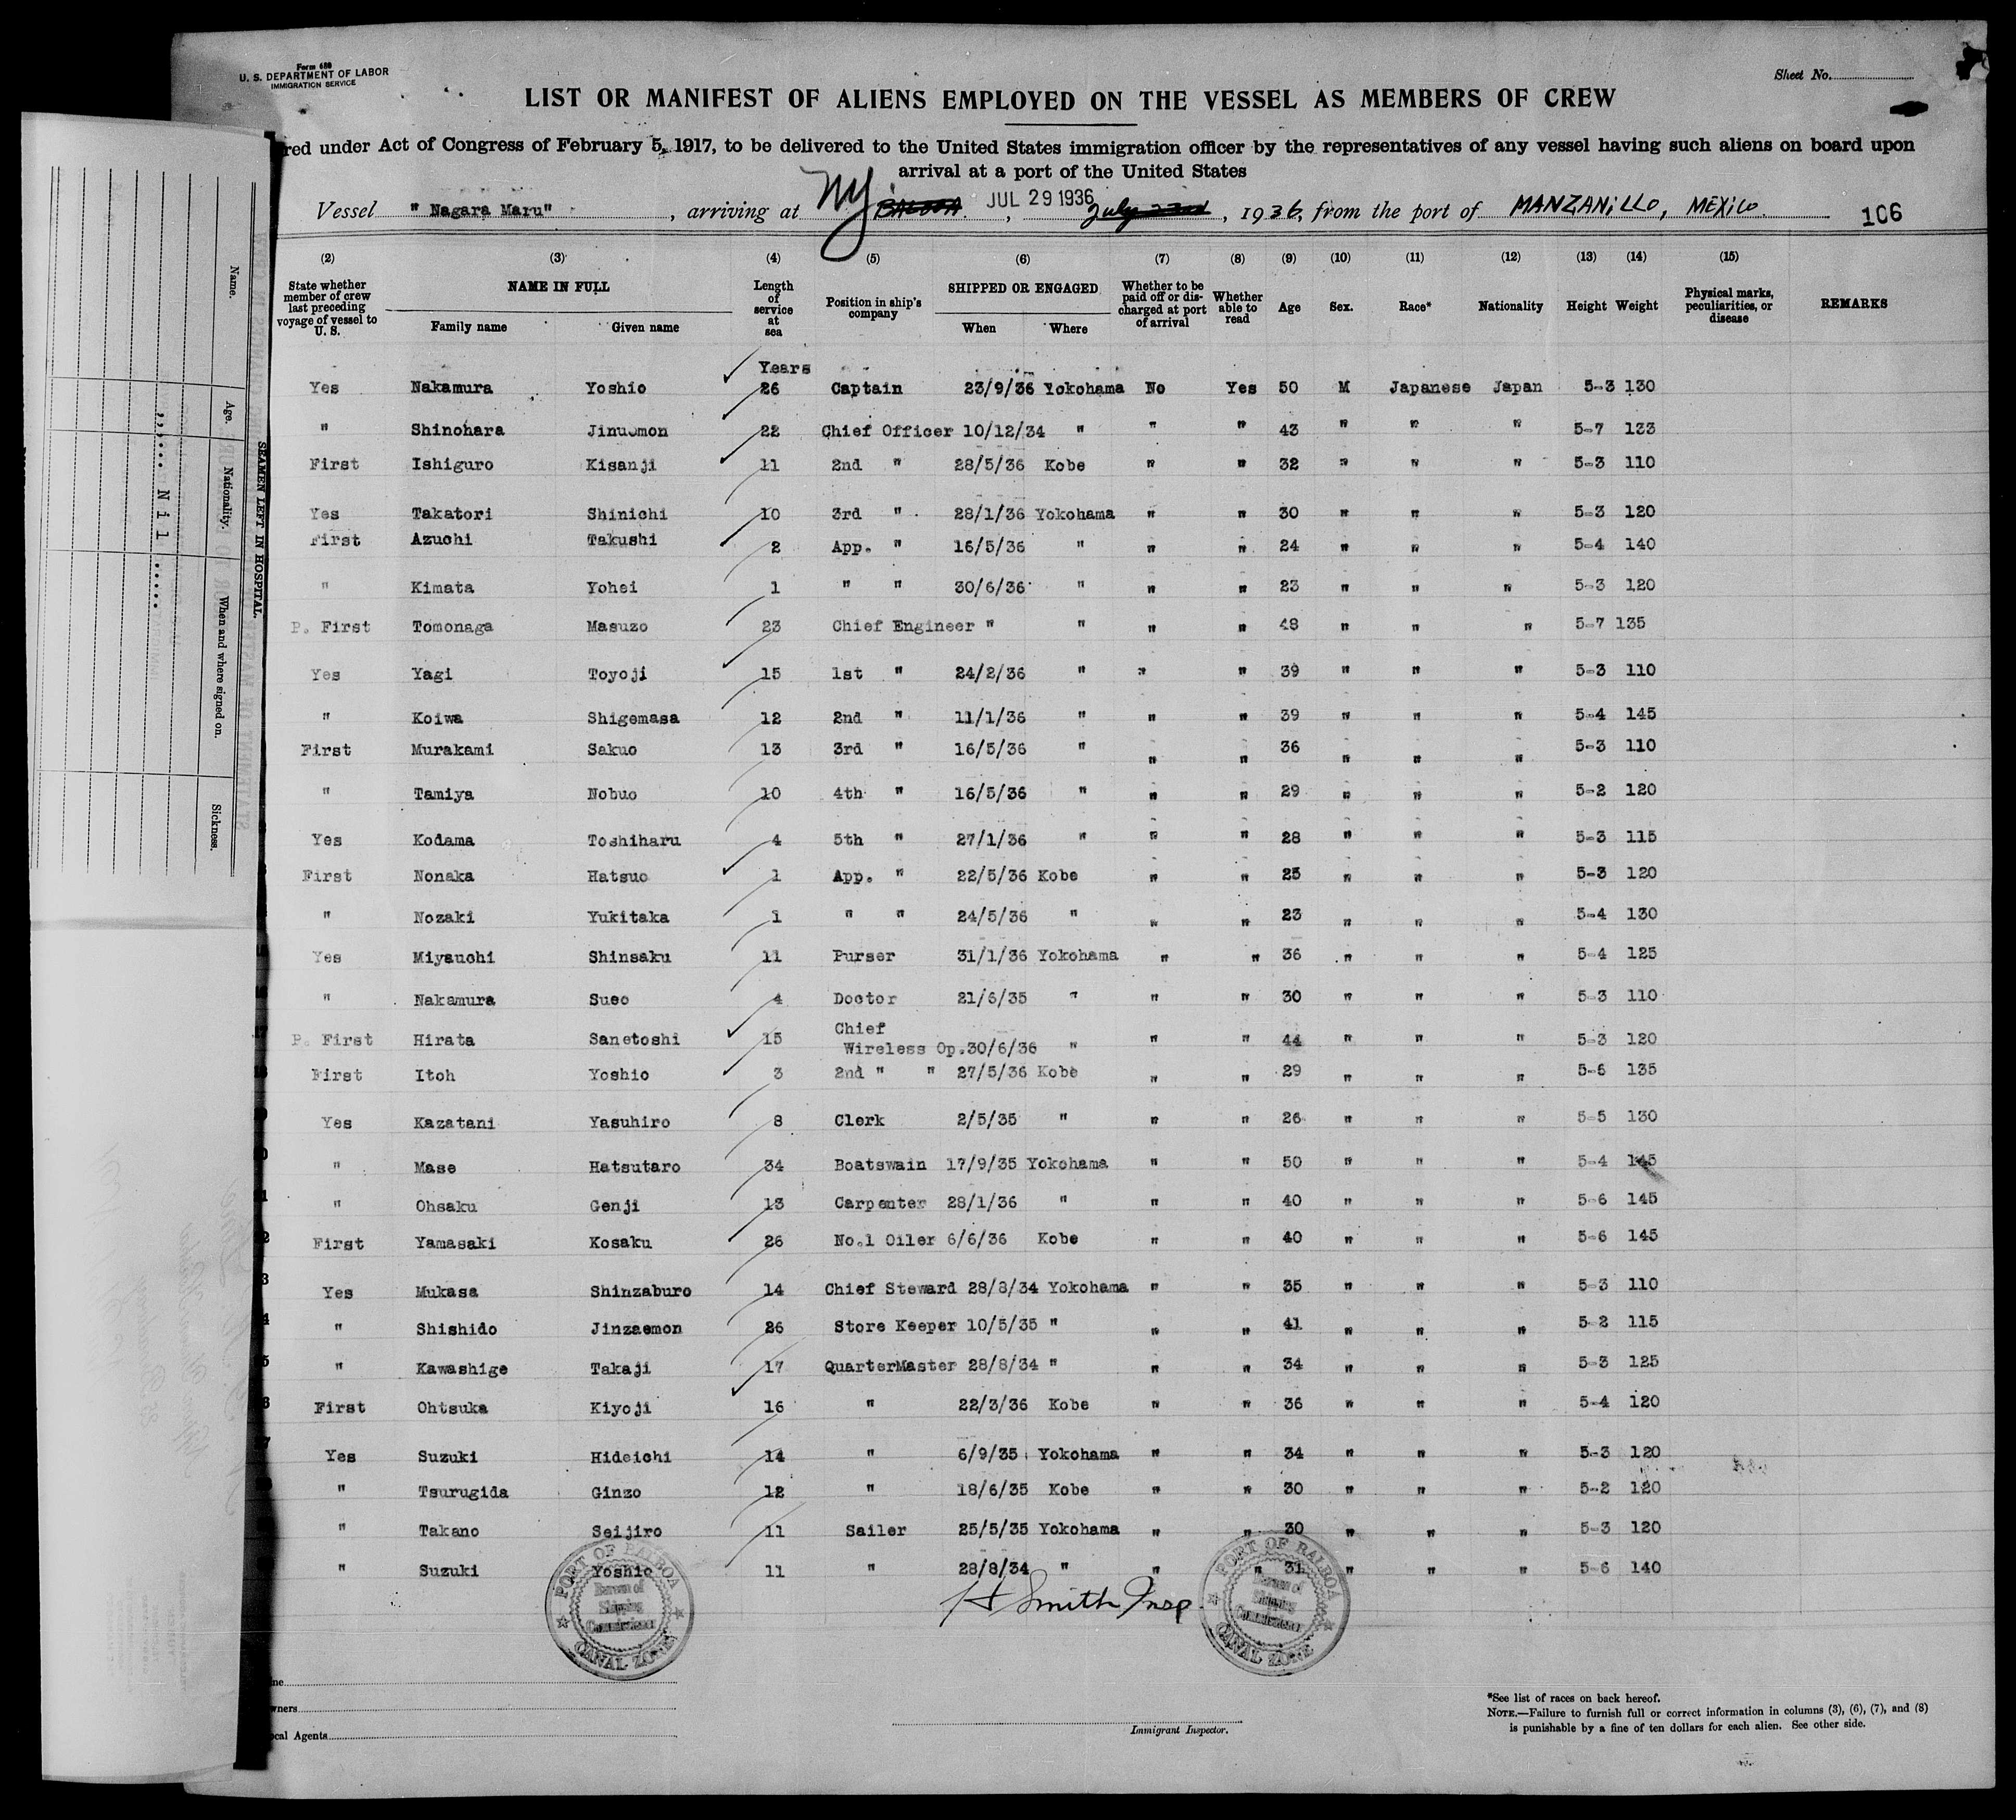 Form 680
U. S. DEPARTMENT OF LABOR
IMMIGRATION SERVICE
Sheet No.
LIST OR MANIFEST OF ALIENS EMPLOYED ON THE VESSEL AS MEMBERS OF CREW
red under Act of Congress of February 5, 1917, to be delivered to the United States immigration officer by the representatives of any vessel having such aliens on board upon
arrival at a port of the United States
Vessel " Nagara Maru" , arriving at NY BALBOA , JUL 29 1936 July 23rd , 1936, from the port of MANZANILLO, MEXICO. 106
(2) (3) (4) (5) (6) (7) (8) (9) (10) (11) (12) (13) (14) (15)
State whether member of crew last preceding voyage of vessel to U. S. NAME IN FULL Family name Given name Length of service at sea Position in ship's company SHIPPED OR ENGAGED When Where Whether to be paid off or discharged at port of arrival Whether able to read Age Sex. Race* Nationality Height Weight Physical marks, peculiarities, or disease REMARKS
Years
Yes Nakamura Yoshio 26 Captain 23/9/36 Yokohama No Yes 50 M Japanese Japan 5-3 130
" Shinohara Jinuemon 22 Chief Officer 10/12/34 " " " 43 " " " 5-7 133
First Ishiguro Kisanji 11 2nd " 28/5/36 Kobe " " 32 " " " 5-3 110
Yes Takatori Shinichi 10 3rd " 28/1/36 Yokohama " " 30 " " " 5-3 120
First Azuchi Takushi 2 App. " 16/5/36 " " " 24 " " " 5-4 140
" Kimata Yohei 1 " " 30/6/36 " " " 23 " " " 5-3 120
P. First Tomonaga Masuzo 23 Chief Engineer " " " " 48 " " " 5-7 135
Yes Yagi Toyoji 15 1st " 24/2/36 " " " 39 " " " 5-3 110
" Koiwa Shigemasa 12 2nd " 11/1/36 " " " 39 " " " 5-4 145
First Murakami Sakuo 13 3rd " 16/5/36 " " " 36 " " " 5-3 110
" Tamiya Nobuo 10 4th " 16/5/36 " " " 29 " " " 5-2 120
Yes Kodama Toshiharu 4 5th " 27/1/36 " " " 28 " " " 5-3 115
First Nonaka Hatsuo 1 App. " 22/5/36 Kobe " " 25 " " " 5-3 120
" Nozaki Yukitaka 1 " " 24/5/36 " " " 23 " " " 5-4 130
Yes Miyauchi Shinsaku 11 Purser 31/1/36 Yokohama " " 36 " " " 5-4 125
" Nakamura Sueo 4 Doctor 21/6/35 " " " 30 " " " 5-3 110
P. First Hirata Sanetoshi 15 Chief
Wireless Op. 30/6/36 " " " 44 " " " 5-3 120
First Itoh Yoshio 3 2nd " " 27/5/36 Kobe " " 29 " " " 5-6 135
Yes Kazatani Yasuhiro 8 Clerk 2/5/35 " " " 26 " " " 5-5 130
" Mase Hatsutaro 34 Boatswain 17/9/35 Yokohama " " 50 " " " 5-4 145
" Ohsaku Genji 13 Carpenter 28/1/36 " " " 40 " " " 5-6 145
First Yamasaki Kosaku 26 No.1 Oiler 6/6/36 Kobe " " 40 " " " 5-6 145
Yes Mukasa Shinzaburo 14 Chief Steward 28/8/34 Yokohama " " 35 " " " 5-3 110
" Shishido Jinzaemon 26 Store Keeper 10/5/35 " " " 41 " " " 5-2 115
" Kawashige Takaji 17 QuarterMaster 28/8/34 " " " 34 " " " 5-3 125
First Ohtsuka Kiyoji 16 " 22/3/36 Kobe " " 36 " " " 5-4 120
Yes Suzuki Hideichi 14 " 6/9/35 Yokohama " " 34 " " " 5-3 120
" Tsurugida Ginzo 12 " 18/6/35 Kobe " " 30 " " " 5-2 120
" Takano Seijiro 11 Sailer 25/5/35 Yokohama " " 30 " " " 5-3 120
" Suzuki Yoshio 11 " 28/8/34 " " " 31 " " " 5-6 140
PORT OF BALBOA Bureau of Shipping Commissioner CANAL ZONE
Smith Insp.
PORT OF BALBOA Bureau of Shipping Commissioner CANAL ZONE
wners
ocal Agents
Immigrant Inspector.
*See list of races on back hereof.
NOTE.—Failure to furnish full or correct information in columns (3), (6), (7), and (8)
is punishable by a fine of ten dollars for each alien. See other side.
SEAMEN LEFT IN HOSPITAL.
Name. Age. Nationality. When and where signed on. Sickness.
Nil